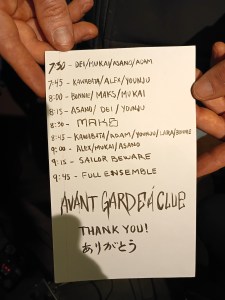 7:30 - DEI/MUKAI/ASANO/ADAM
7:45 - KAWABATA/ALEX/YOUNJU
8:00 - BONNIE/MAKS/MUKAI
8:15 - ASANO/DEI/YOUNJU
8:30 - MAKO
8:45 - KAWABATA/ADAM/YOUNJU/LARA/BONNIE
9:00 - ALEX/MUKAI/ASANO
9:15 - SAILOR BEWARE
9:45 - FULL ENSEMBLE
AVANT GARDE CLUE
THANK YOU!
ありがとう